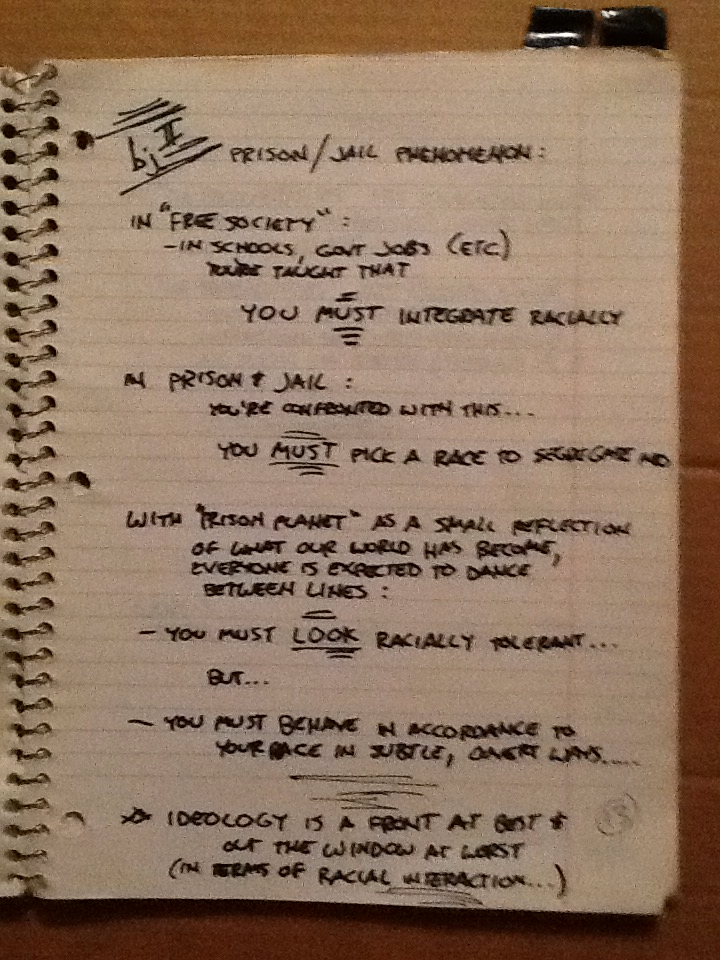 bj II PRISON/JAIL PHENOMENON:
IN "FREE SOCIETY":
-IN SCHOOLS, GOVT JOBS (ETC)
YOU'RE TAUGHT THAT
YOU MUST INTEGRATE RACIALLY
IN PRISON & JAIL:
YOU'RE CONFRONTED WITH THIS...
YOU MUST PICK A RACE TO SEGREGATE
WITH "PRISON PLANET" AS A SMALL REFLECTION
OF WHAT OUR WORLD HAS BECOME,
EVERYONE IS EXPECTED TO DANCE
BETWEEN LINES:
- YOU MUST LOOK RACIALLY TOLERANT...
BUT...
- YOU MUST BEHAVE IN ACCORDANCE TO
YOUR RACE IN SUBTLE, COVERT WAYS.....
IDEOLOGY IS A FRONT AT BEST &
OUT THE WINDOW AT WORST
(IN TERMS OF RACIAL INTERACTION...)